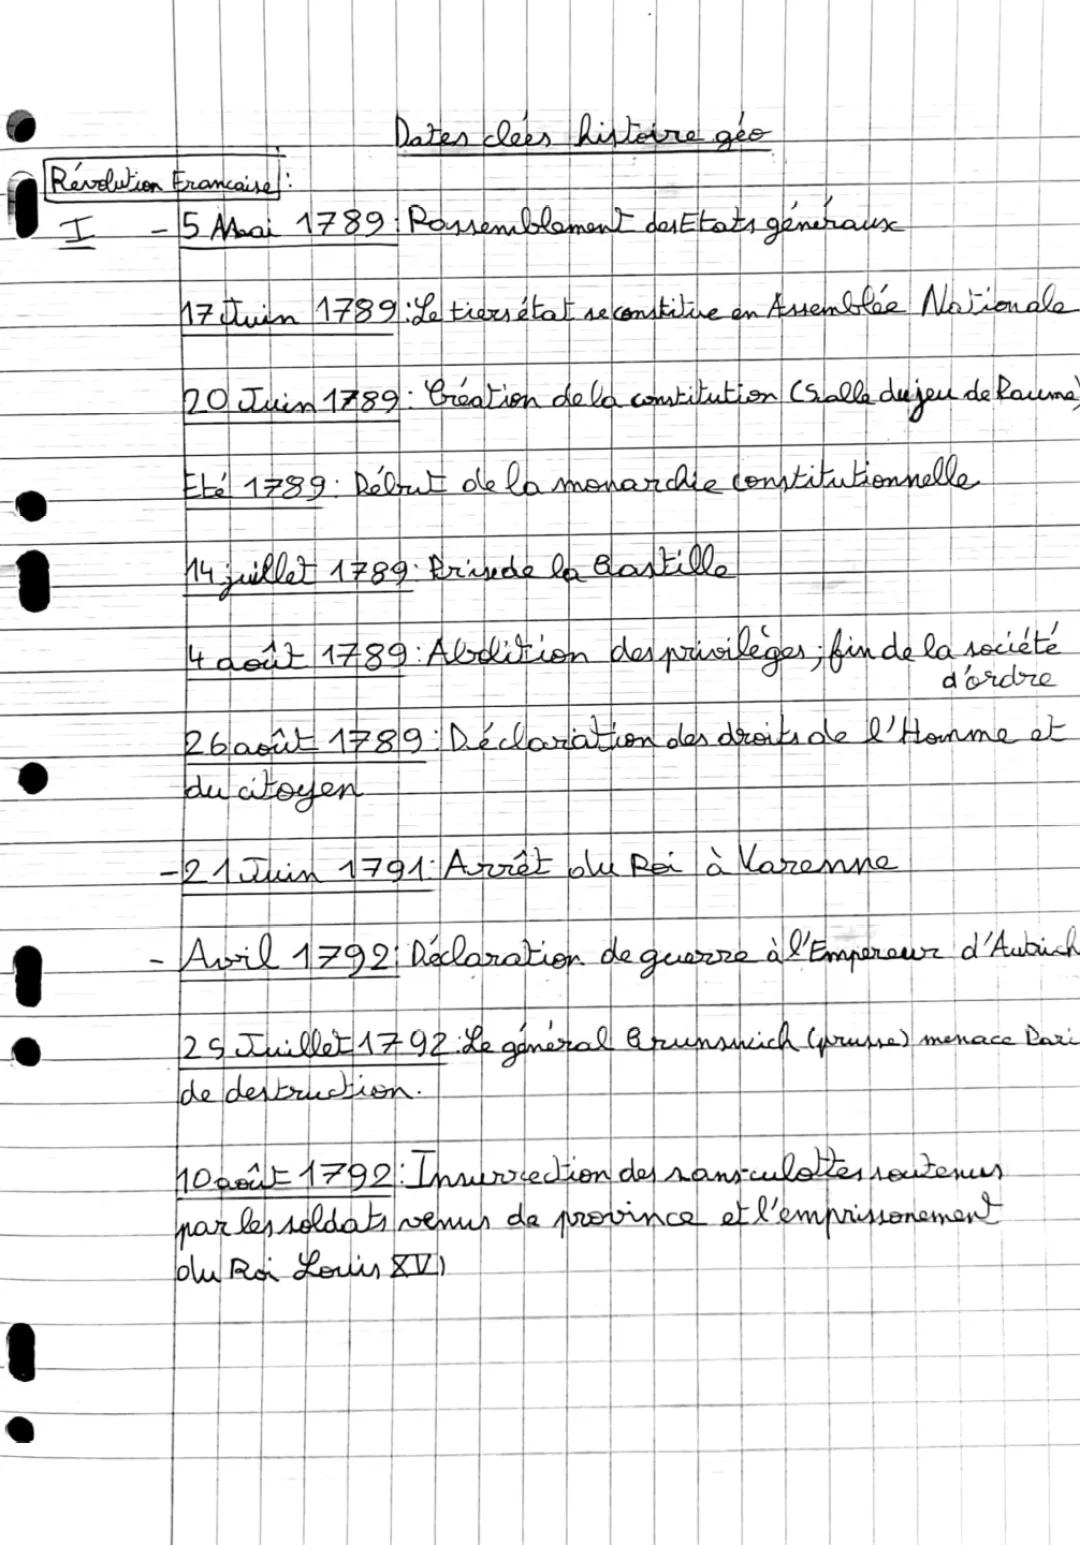 Dates clées histoire géo
Révolution Francaise :
I - 5 Mai 1789 : Rassemblement des Etats généraux
17 Juin 1789 : Le tiers état se constitue en Assemblée Nationale
20 Juin 1789 : Création de la constitution (Salle du jeu de Paume)
Eté 1789 : Début de la monarchie constitutionnelle
14 juillet 1789 : Prise de la Bastille
4 août 1789 : Abolition des privilèges ; fin de la société
d'ordre
26 août 1789 : Déclaration des droits de l'Homme et
du citoyen
- 21 Juin 1791 : Arrêt du Roi à Varenne
- Avril 1792 : Déclaration de guerre à l'Empereur d'Autrich
25 Juillet 1792 : Le général Brunswich (prusse) menace Pari
de destruction.
10 août 1792 : Insurrection des sans-culottes soutenus
par les soldats venus de province et l'emprissonement
du Roi Louis XVI